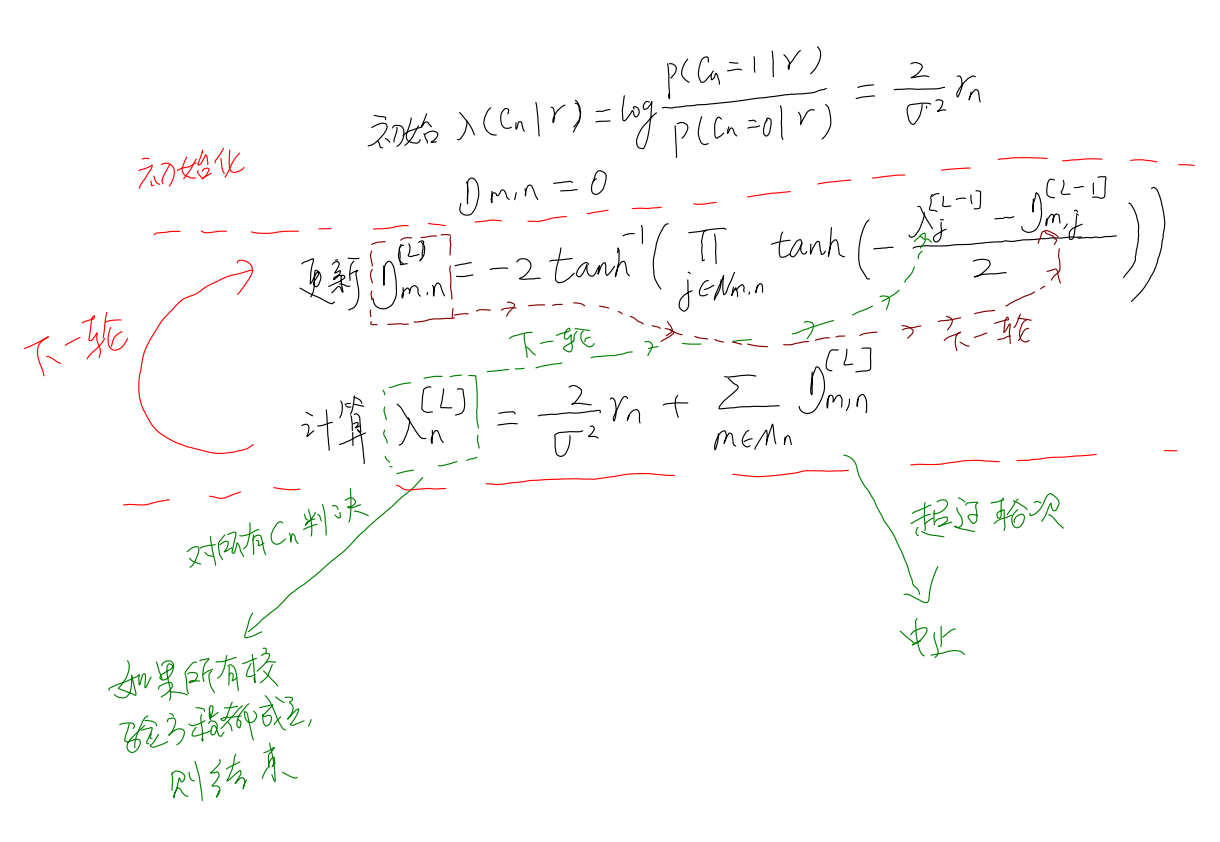 初始 λ(Cn|r) = log P(Cn=1|r) / P(Cn=0|r) = 2/σ² rn
初始化
Dm,n = 0
更新 Dm,n^[L] = -2 tanh⁻¹( ∏ j∈Nm,n tanh( - (λj^[L-1] - Dm,j^[L-1]) / 2 ))
下一轮
下一轮
下一轮
计算 λn^[L] = 2/σ² rn + ∑ m∈Mn Dm,n^[L]
对所有Cn判决
超过轮次
中止
如果所有校
验方程都成立,
则结束